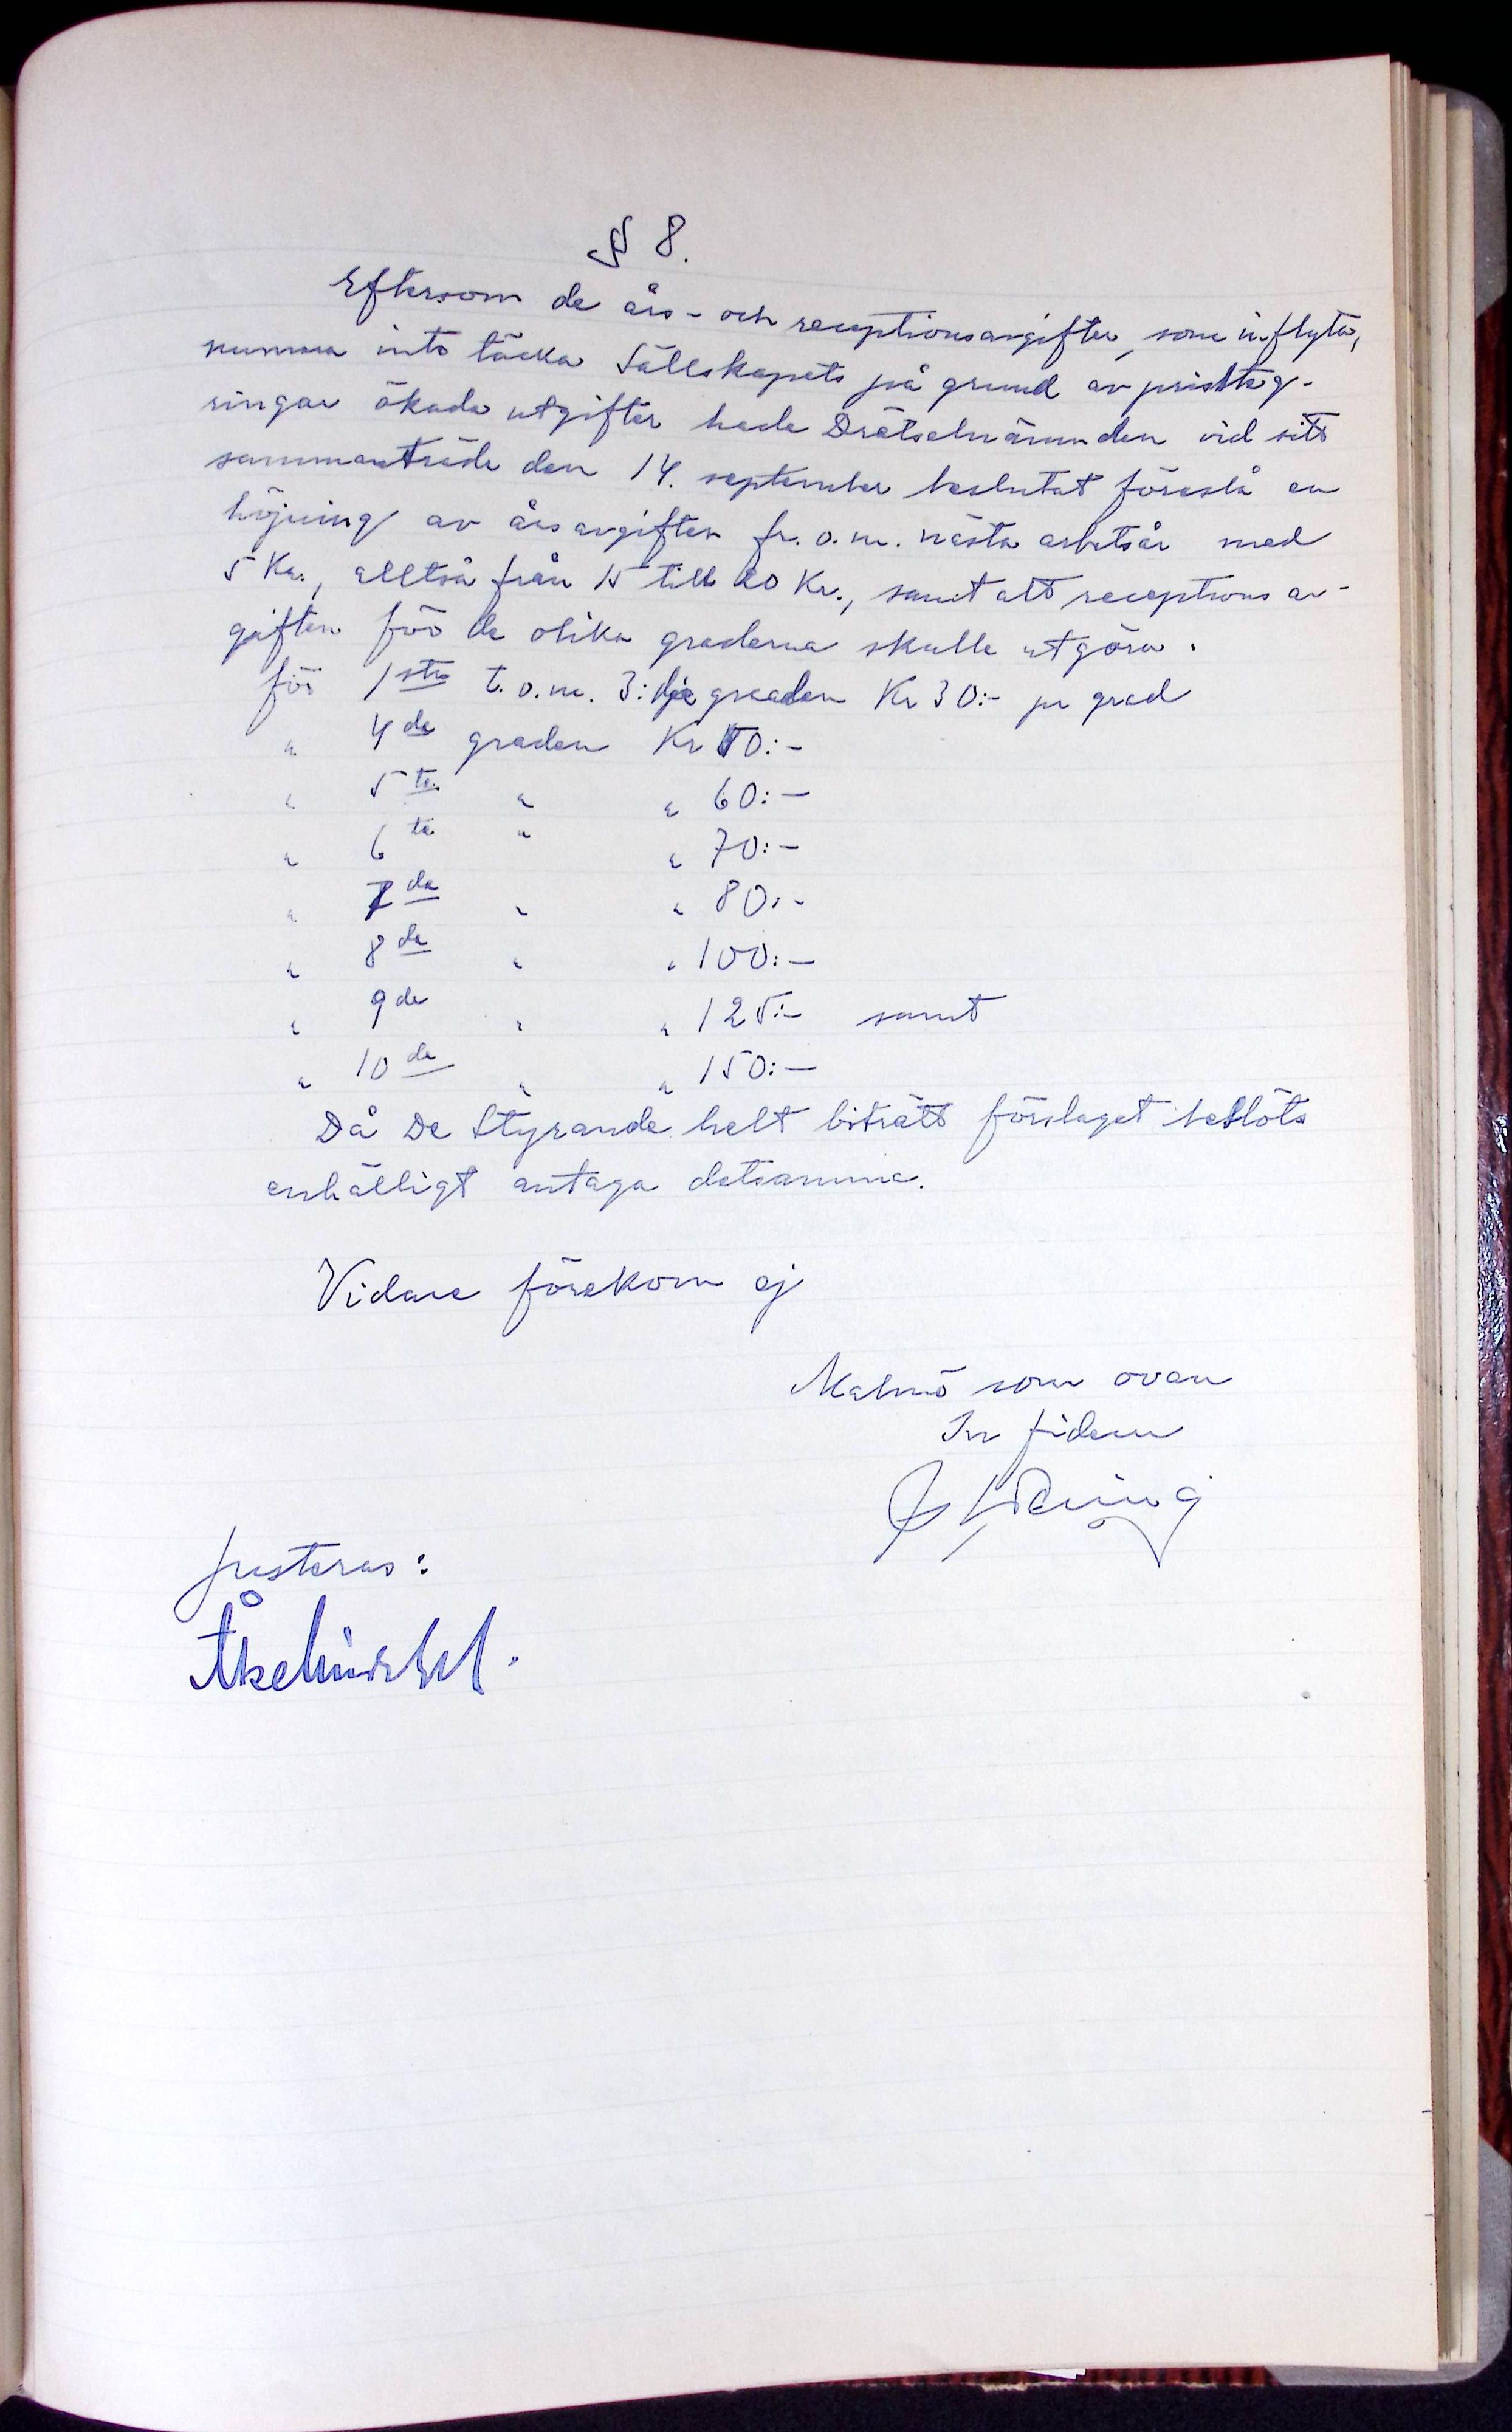 § 8.
Eftersom de års- och receptionsavgifter, som inflyta,
numera inte täcka Sällskapets på grund av prissteg-
ringar ökade utgifter hade Drätselnämnden vid sitt
sammanträde den 14. september beslutat föreslå en
höjning av årsavgiften fr. o. m. nästa arbetsår med
5 Kr., alltså från 15 till 20 Kr., samt att receptionsav-
giften för de olika graderna skulle utgöra:
för 1sta t.o.m. 3:dje graden Kr 30:- pr grad
" 4de graden Kr 50:-
" 5te " " 60:-
" 6te " " 70:-
" 7de " " 80:-
" 8de " " 100:-
" 9de " " 125:- samt
" 10de " " 150:-
Då De Styrande helt biträtt förslaget beslöts
enhälligt antaga detsamma.
Vidare förekom ej
Malmö som ovan
In fidem
Justeras:
Åke